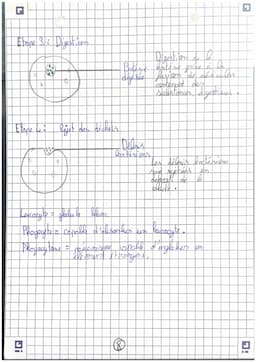 Etape 3: Digestion
Bactérie
digérée
Digestion de la
bactérie grâce à la
fusion de
contenant des
substances digestives.
Etape 4: Rejet des déchets
Débris
bactériens
Les débris bactériens
sont rejetés en
dehors de la
cellule.
Leucocyte = globule blanc
Phagocyte = capable d'
un leucocyte.
Phagocytose = mécanisme capable d'ingérer un
élément étranger.
8